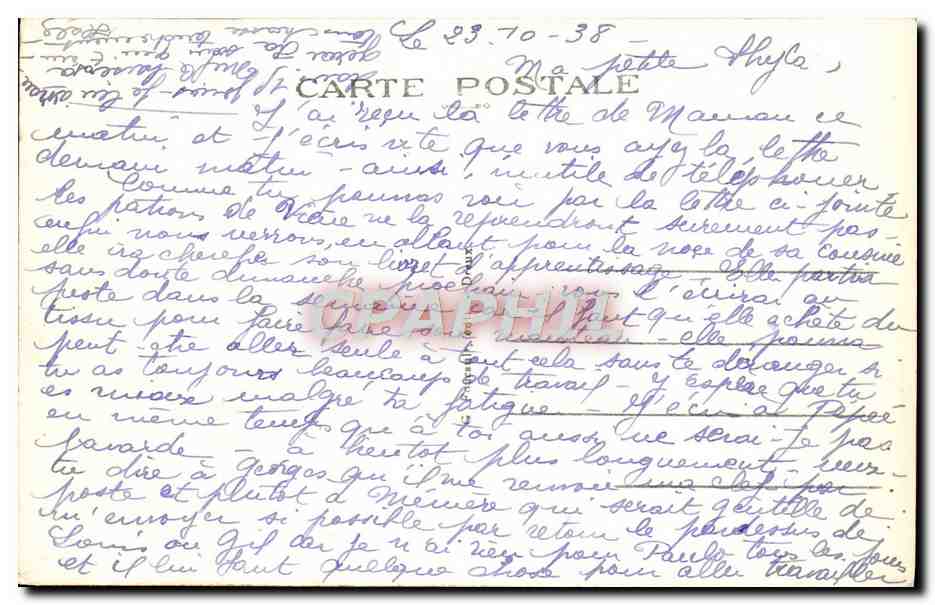 Le 23-10-38-
Ma petite
CARTE POSTALE
J'ai reçu la lettre de Maman ce
matin et t'écris vite que vous ayez la lettre
demain matin - ainsi, inutile de téléphoner
Comme tu pourras voir par la lettre ci-jointe
les patrons de ne la reprendront surement pas -
enfin nous verrons, en allant pour la noce de sa cousine
elle ira chercher son livret d'apprentissage. Elle partira
sans doute dimanche prochain, vous l'écrirai au
reste dans la semaine il faut qu'elle achète du
tissu pour faire faire son manteau - elle pourra
peut être aller seule à tout cela sans te déranger si
tu as toujours beaucoup de travail - J'espère que tu
es mieux malgré ta fatigue - J'écris à Pépé
en même temps qu'à toi aussi ne serai-je pas
bavarde - à bientôt plus longuement - veux-
tu dire à Georges qu'il me renvoie ma clef par
poste et plutôt à Mémère qui serait gentille de
m'envoyer si possible par retour le pardessus de
Louis ou Gil car je n'ai rien pour Paulo tous les jours
et il lui faut quelque chose pour aller travailler
CPAPHIL